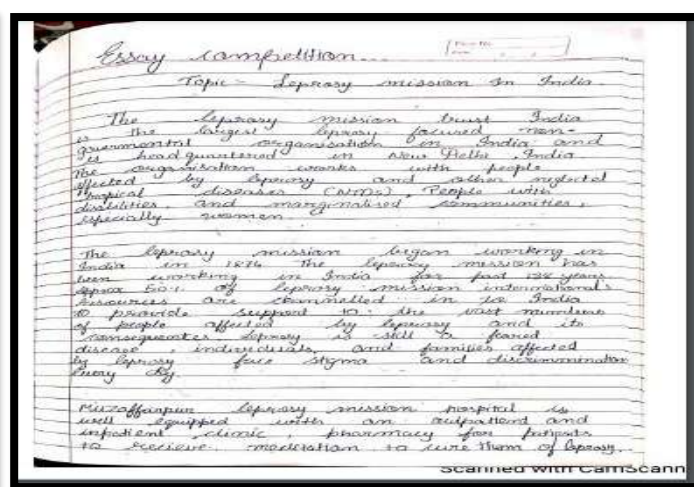 Essay competition...
Topic - Leprosy mission In India.
The leprosy mission trust India
is the largest leprosy focused non-
governmental organisation in India and
is headquartered in New Delhi, India
The organisation works with people
affected by leprosy and other neglected
tropical diseases (NTDs), People with
disabilities and marginalised communities,
especially women.
The leprosy mission began working in
India in 1874 The leprosy mission has
been working in India for past years
50% of leprosy mission international's
resources are channelled in to India
to provide support to the vast numbers
of people affected by leprosy and its
consequences. Leprosy is still a feared
disease, individuals and families affected
by leprosy face stigma and discrimination
every day.
Muzaffarpur leprosy mission hospital is
well equipped with an outpatient and
inpatient clinic, pharmacy for patients
to recieve to cure them of leprosy.
Scanned with CamScann